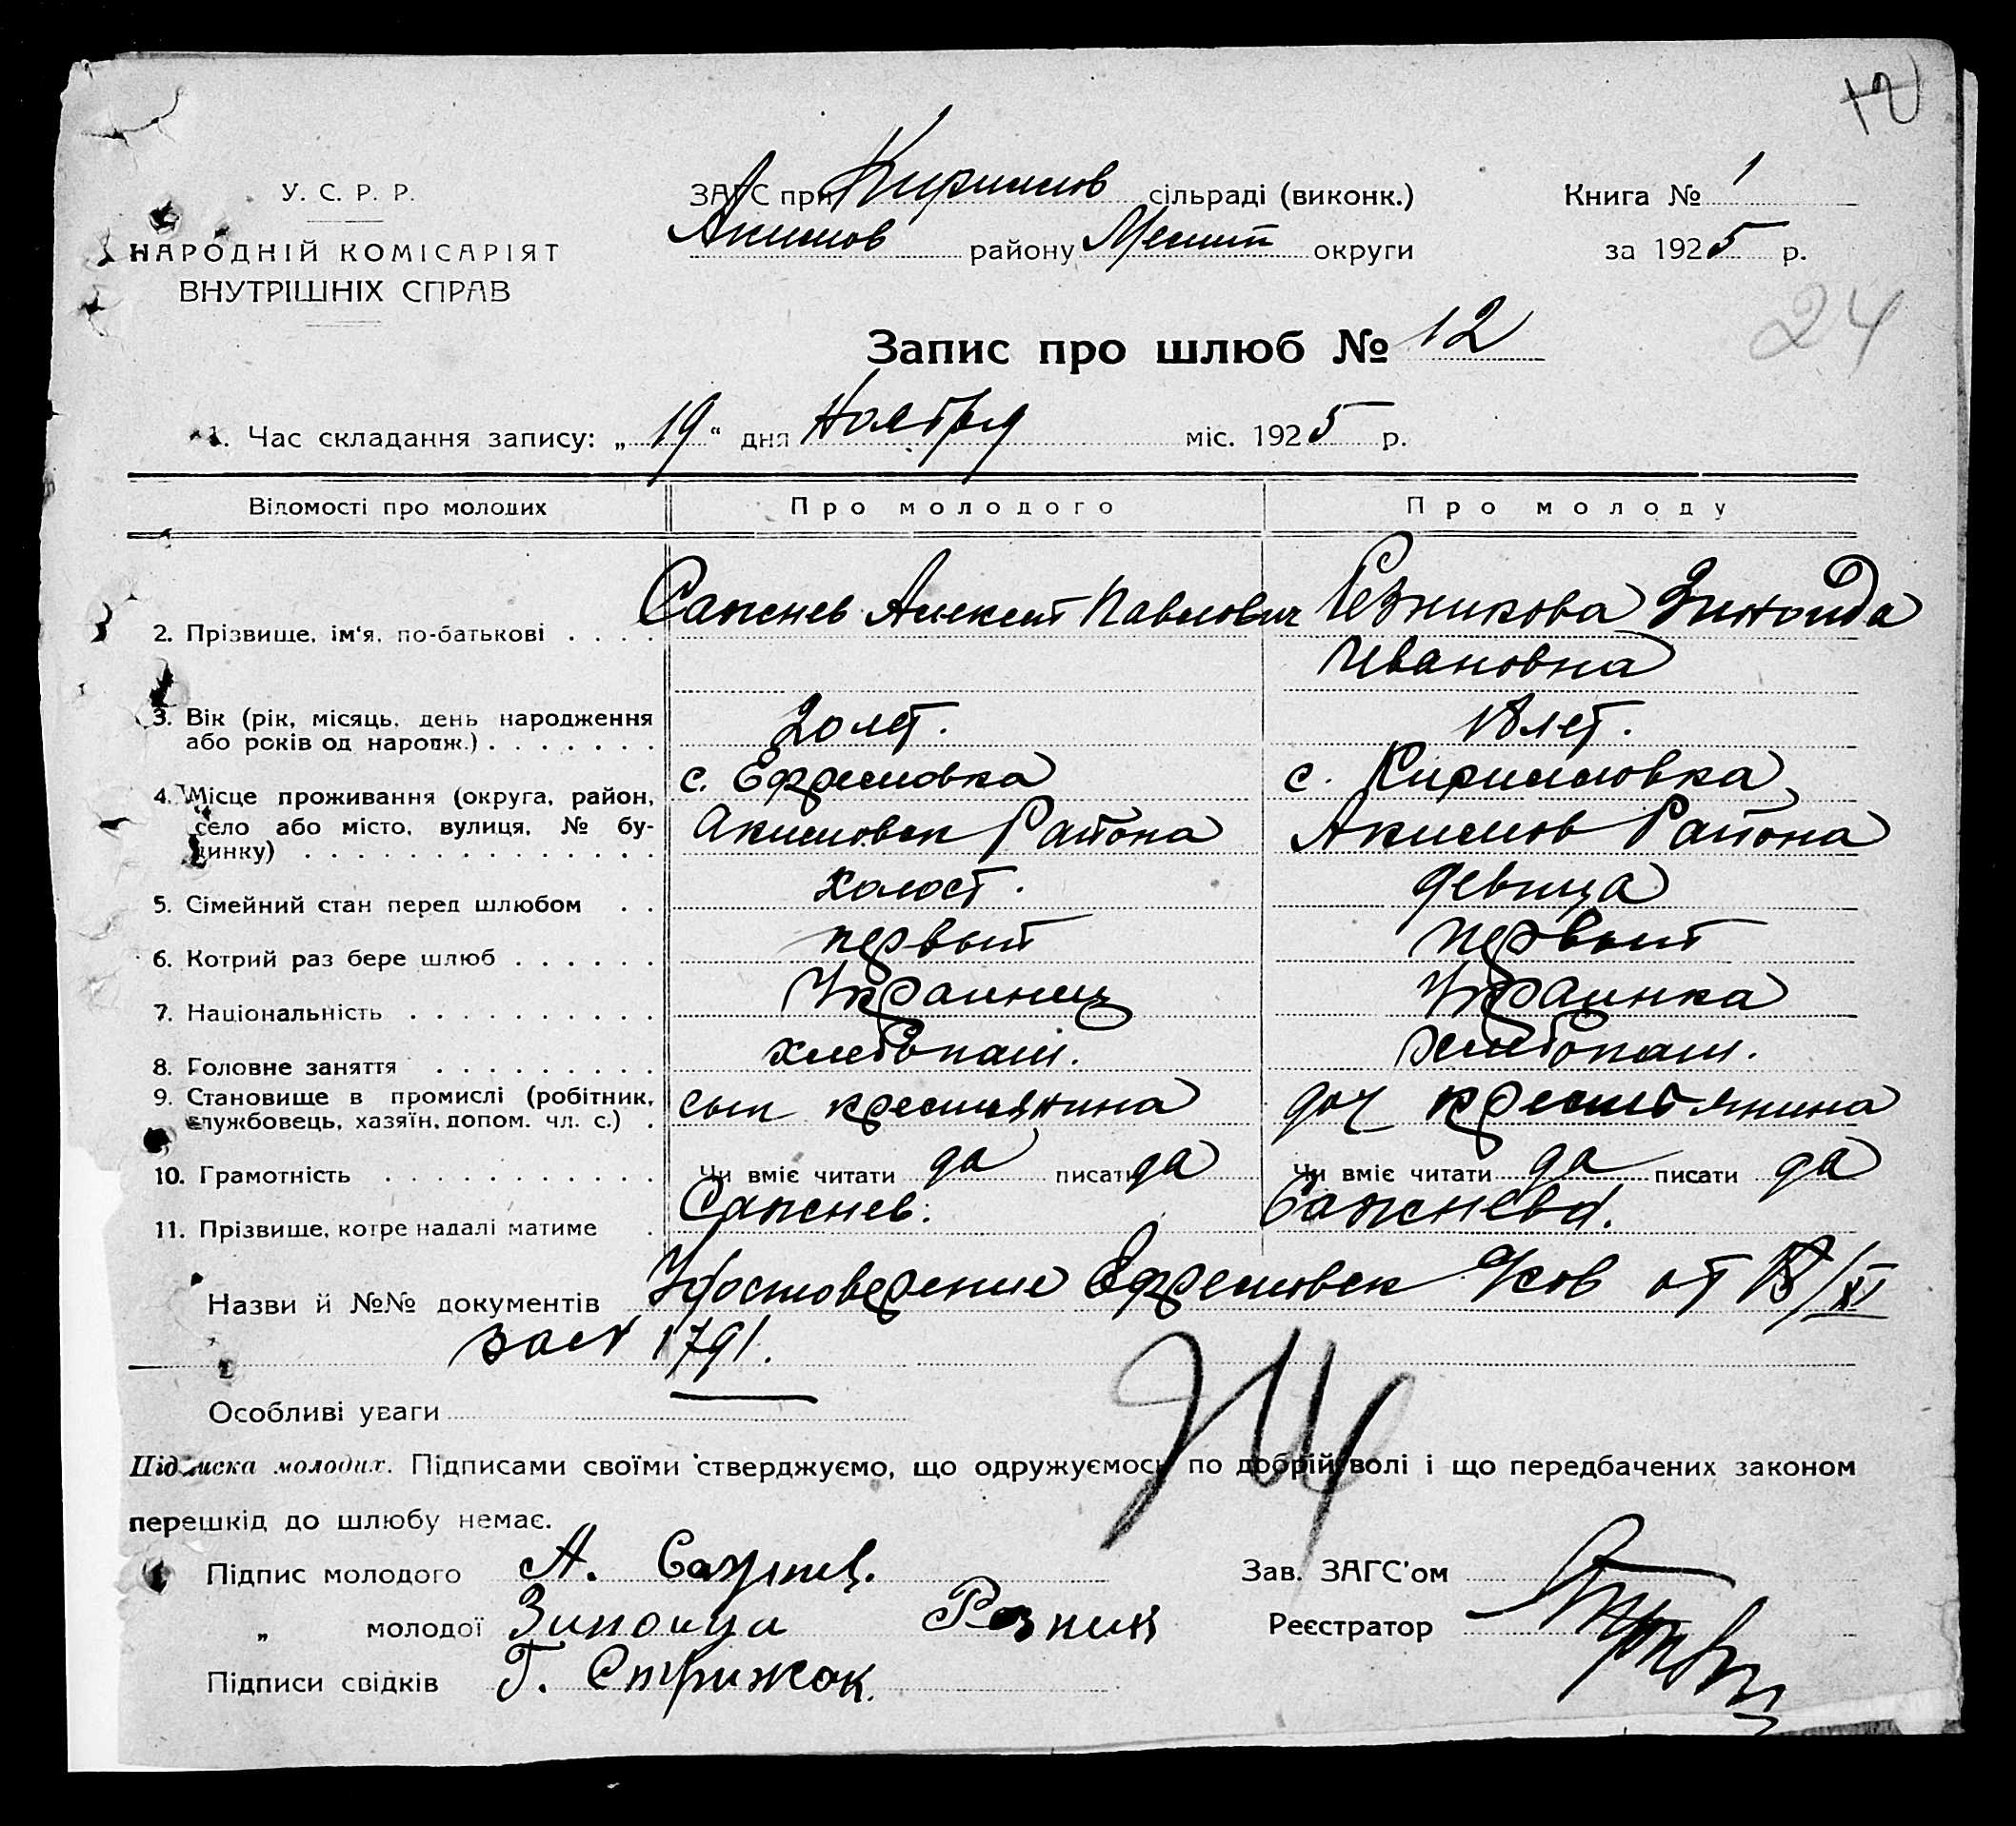 12
У. С. Р. Р.
НАРОДНІЙ КОМІСАРІЯТ
ВНУТРІШНІХ СПРАВ
ЗАГС при Кирилов сільраді (виконк.)
Акимов району Мелит округи
Книга № 1
за 1925 р.
24
Запис про шлюб № 12
1. Час складання запису: „19“ дня Ноября міс. 1925 р.
Відомості про молодих Про молодого Про молоду
2. Прізвище, ім'я, по-батькові . . . . Сапснев Алексей Павлович Резникова Зиноида
Ивановна
3. Вік (рік, місяць, день народження
або років од народж.) . . . . . . . 20 лет. 18 лет.
4. Місце проживання (округа, район,
село або місто, вулиця, № бу-
динку) . . . . . . . . . . . . . .
с. Ефремовка с. Кирилловка
Акимовск Района Акимов Района
5. Сімейний стан перед шлюбом . . холост. девица
6. Котрий раз бере шлюб . . . . . . первый первый
7. Національність . . . . . . . . . . Украинец Украинка
8. Головне заняття . . . . . . . . . хлебопаш. хлебопаш.
9. Становище в промислі (робітник,
службовець, хазяїн, допом. чл. с.) . сын крестьянина доч крестьянина
10. Грамотність . . . . . . . . . . . Чи вміє читати да писати да Чи вміє читати да писати да
11. Прізвище, котре надалі матиме . Сапснев. Сапснева.
Назви й №№ документів Удостоверение Ефремовск от 18/XI
за № 1791.
Особливі уваги
Підписка молодих. Підписами своїми стверджуємо, що одружуємось по добрій волі і що передбачених законом
перешкід до шлюбу немає.
Підпис молодого А.
„ молодої Зиноида Резник
Підписи свідків Г. Стрижак.
Зав. ЗАГС'ом
Реєстратор